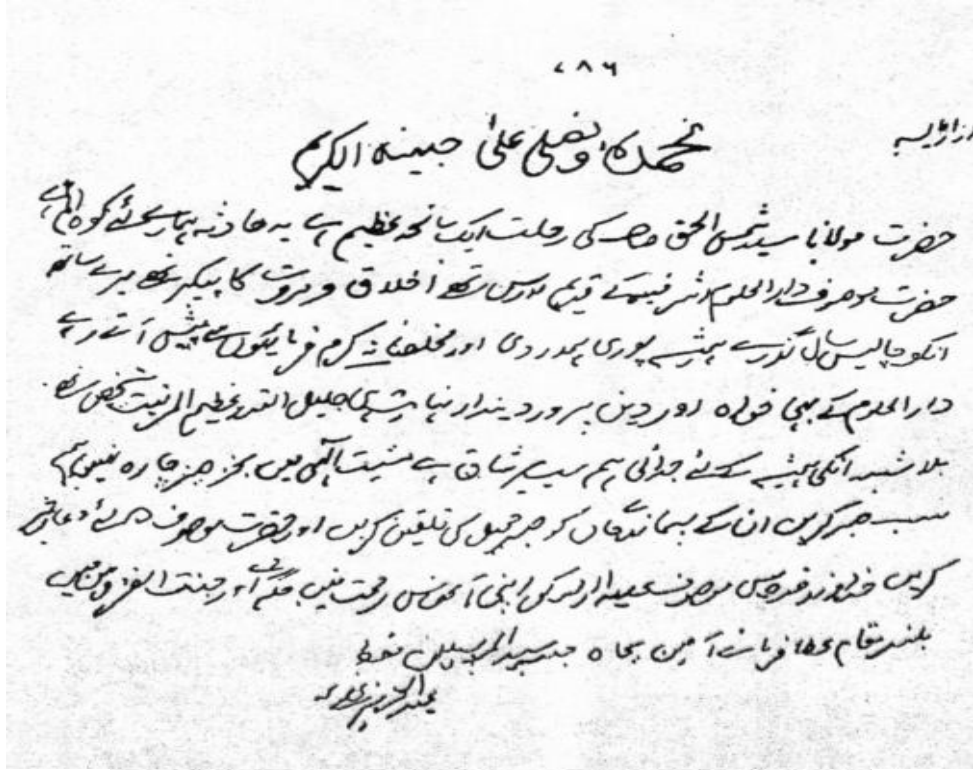 ۷۸۶
نحمدہ ونصلی علیٰ حبیبہ الکریم
حضرت مولانا سید شمس الحق صاحب کی رحلت ایک سانحہ عظیم ہے یہ حادثہ ہمارے لئے کوہ الم ہے
حضرت موصوف دارالعلوم اشرفیہ کے قدیم مدرس تھے اخلاق و مروت کا پیکر تھے میرے ساتھ
انکو چالیس سال گذرے ہمیشہ پوری ہمدردی اور مخلصانہ کرم فرمائیگوں سے پیش آتے رہے
دارالعلوم کے بہی خواہ اور دین پرور دیندار نہایت ہی جلیل القدر عظیم المرتبت شخص تھے
بلا شبہ انکی ہمیشہ کے لئے جدائی ہم سب پر شاق ہے مشیت الٰہی میں بجز صبر چارہ نہیں ہم
سب صبر کریں ان کے پسماندگان کو صبر جمیل کی تلقین کریں اور حضرت موصوف کے لئے دعا خیر
کریں خداوند قدوس موصوف علیہ الرحمہ کو اپنی آغوش رحمت میں جگہ دے اور جنت الفردوس میں
بلند مقام عطا فرمائے آمین بجاہ سید المرسلین فقط
عبدالعزیز عفی عنہ